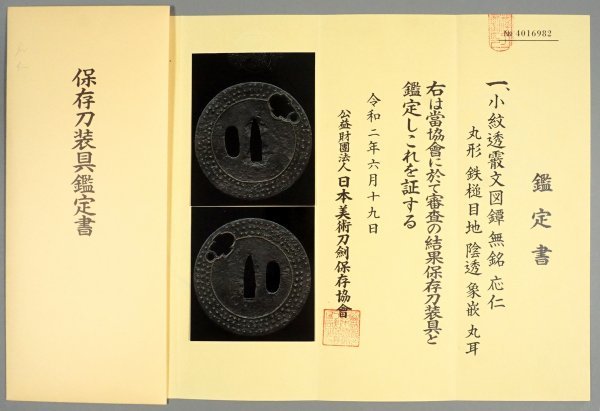 № 4016982
鑑定書
一、小紋透霰文図鐔 無銘 応仁
丸形 鉄槌目地 陰透 象嵌 丸耳
右は當協會に於て審査の結果保存刀装具と
鑑定しこれを証する
令和二年六月十九日
公益財團法人 日本美術刀劍保存協會
保存刀装具鑑定書